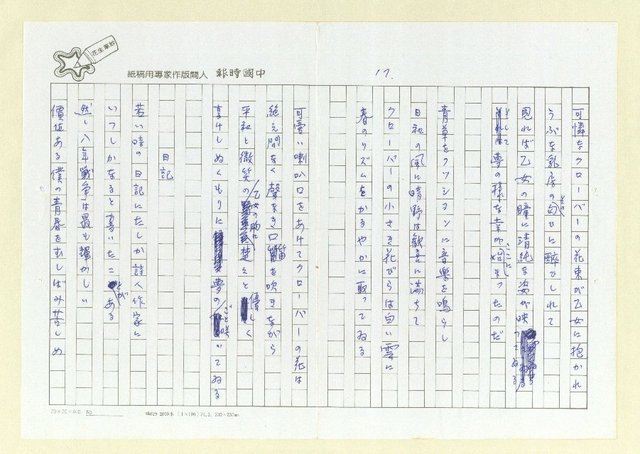 中國時報 人間版作家專用稿紙
17.
可憐なクローバーの花束が乙女に抱かれ
うぶな乳房の匂ひに酔ひしれて
見れば乙女の瞳に清純な姿が映つてゐる
そして夢の様な幸がここに始まつたのだ
青草をクツションに音楽を鳴らし
日和の風に晴野は歓喜に満ちて
クローバーの小さき花びらは白い雲に
春のリズムをかろやかに取つてゐる
可愛い喇叭口をあけてクローバーの花は
絶え間なく聲なき口笛を吹きながら
平和と微笑の乙女の胸に優しく
幸けしぬくもりに夢のごと咲いてゐる
日記
若い時の日記にたしか詩人作家に
いつしかなると書いたことがある
然し八年戦争は最も輝かしい
價値ある僕の青春を蝕しばみ苦しめ